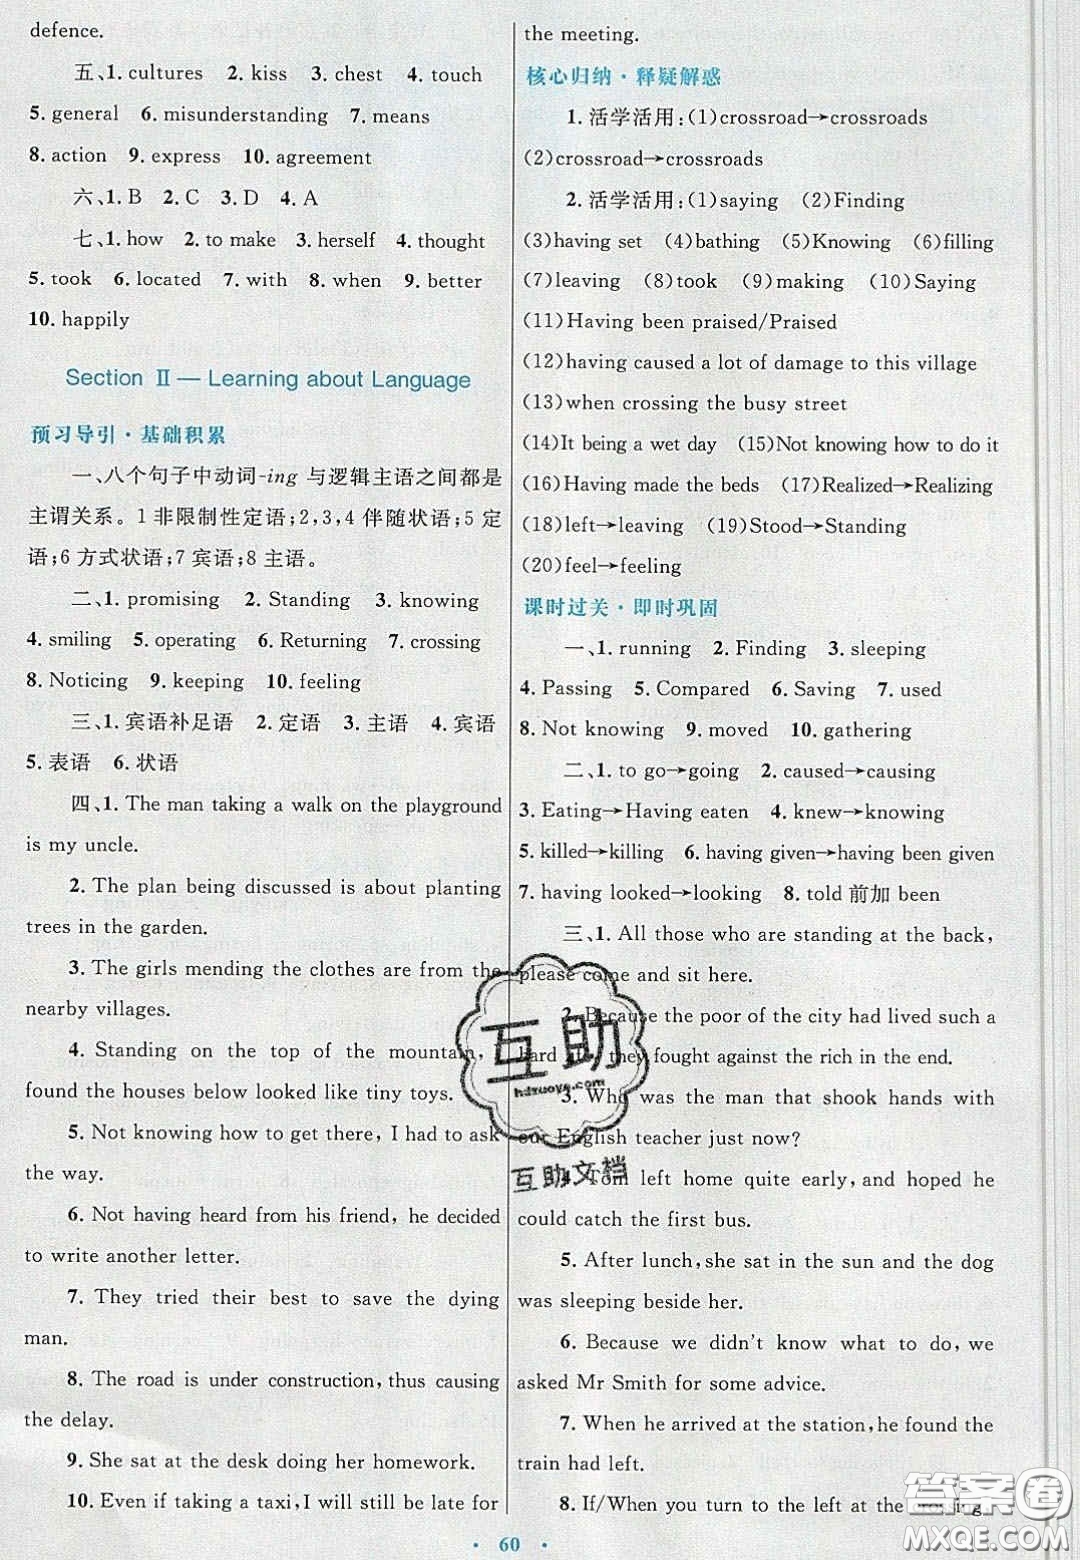 defence.
五、1. cultures 2. kiss 3. chest 4. touch
5. general 6. misunderstanding 7. means
8. action 9. express 10. agreement
六、1. B 2. C 3. D 4. A
七、1. how 2. to make 3. herself 4. thought
5. took 6. located 7. with 8. when 9. better
10. happily
Section Ⅱ — Learning about Language
预习导引·基础积累
一、八个句子中动词-ing 与逻辑主语之间都是
主谓关系。1 非限制性定语;2,3,4 伴随状语;5 定
语;6 方式状语;7 宾语;8 主语。
二、1. promising 2. Standing 3. knowing
4. smiling 5. operating 6. Returning 7. crossing
8. Noticing 9. keeping 10. feeling
三、1. 宾语补足语 2. 定语 3. 主语 4. 宾语
5. 表语 6. 状语
四、1. The man taking a walk on the playground
is my uncle.
2. The plan being discussed is about planting
trees in the garden.
3. The girls mending the clothes are from the
nearby villages.
4. Standing on the top of the mountain, I
found the houses below looked like tiny toys.
5. Not knowing how to get there, I had to ask
the way.
6. Not having heard from his friend, he decided
to write another letter.
7. They tried their best to save the dying
man.
8. The road is under construction, thus causing
the delay.
9. She sat at the desk doing her homework.
10. Even if taking a taxi, I will still be late for
the meeting.
核心归纳·释疑解惑
1. 活学活用:(1)crossroad→crossroads
(2)crossroad→crossroads
2. 活学活用:(1)saying (2)Finding
(3)having set (4)bathing (5)Knowing (6)filling
(7)leaving (8)took (9)making (10)Saying
(11)Having been praised/Praised
(12)having caused a lot of damage to this village
(13)when crossing the busy street
(14)It being a wet day (15)Not knowing how to do it
(16)Having made the beds (17)Realized→Realizing
(18)left→leaving (19)Stood→Standing
(20)feel→feeling
课时过关·即时巩固
一、1. running 2. Finding 3. sleeping
4. Passing 5. Compared 6. Saving 7. used
8. Not knowing 9. moved 10. gathering
二、1. to go→going 2. caused→causing
3. Eating→Having eaten 4. knew→knowing
5. killed→killing 6. having given→having been given
7. having looked→looking 8. told 前加 been
三、1. All those who are standing at the back,
please come and sit here.
2. Because the poor of the city had lived such a
hard they fought against the rich in the end.
3. Who was the man that shook hands with
our English teacher just now?
4. Tom left home quite early, and hoped he
could catch the first bus.
5. After lunch, she sat in the sun and the dog
was sleeping beside her.
6. Because we didn't know what to do, we
asked Mr Smith for some advice.
7. When he arrived at the station, he found the
train had left.
8. If/When you turn to the left at the
互助
hdzuoye.com
互助文档
答案圈
MXQE.COM
60